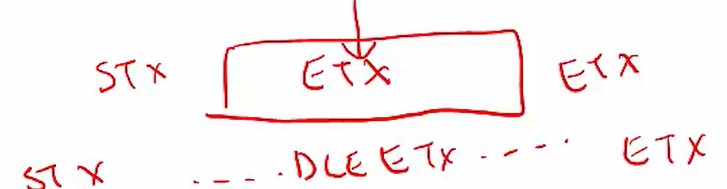 STX ETX ETX
STX .....DLE ETX ..... ETX